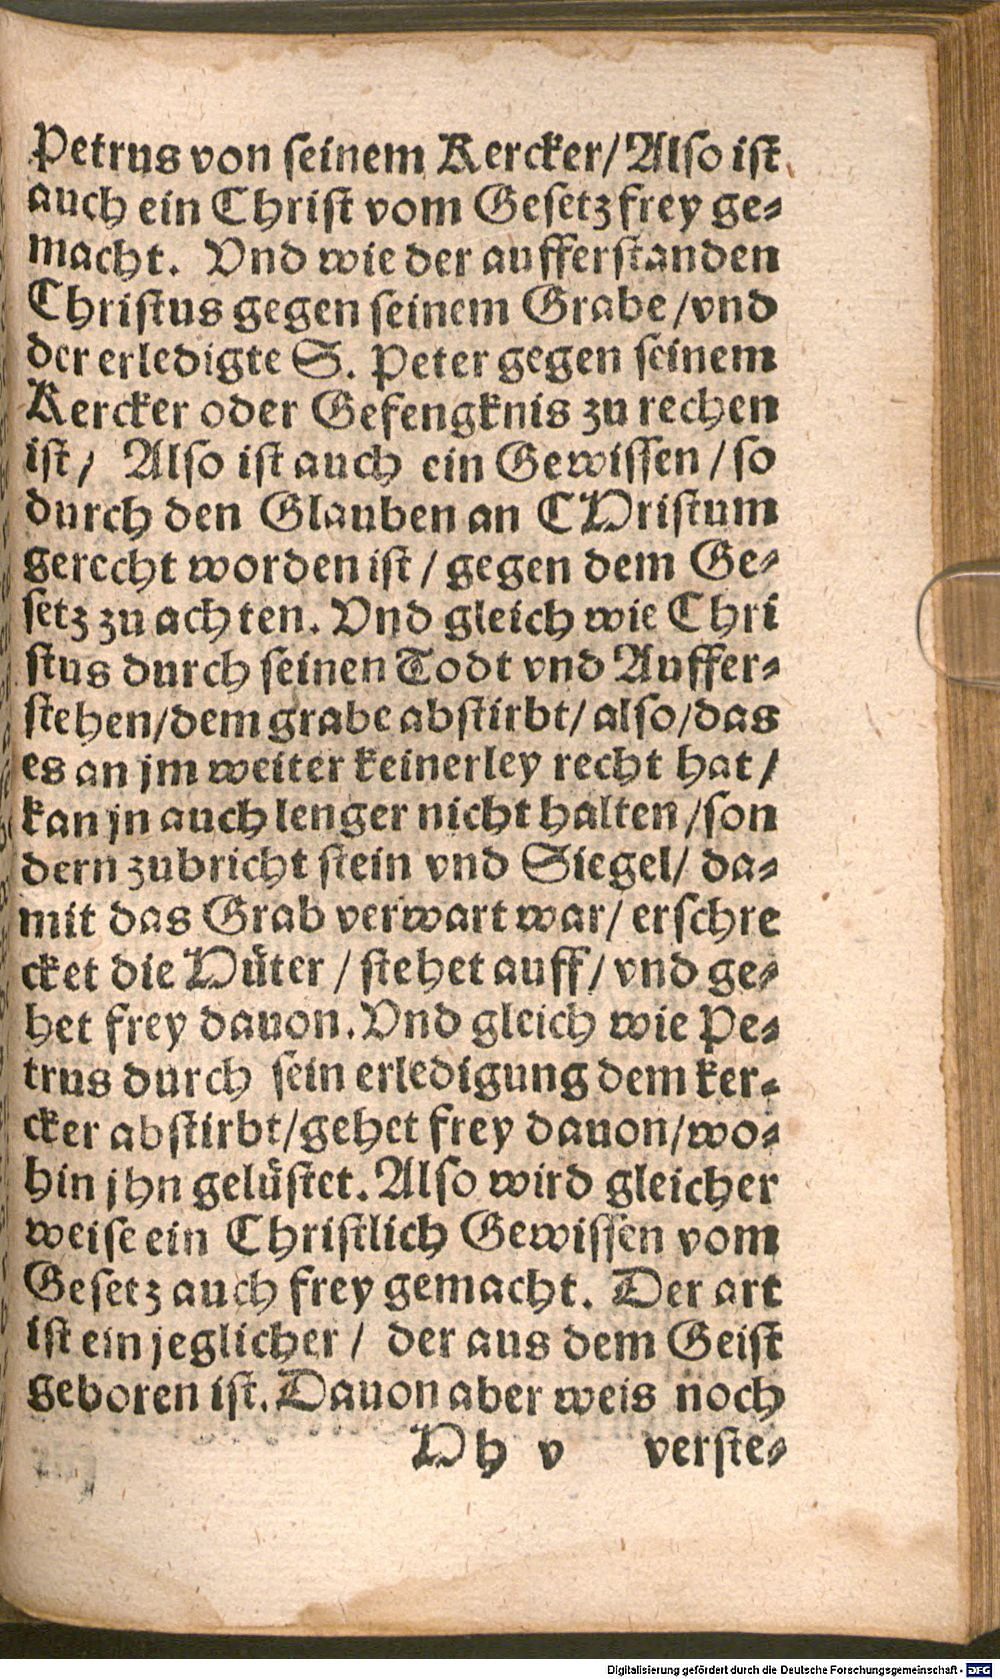 Petrus von seinem Kercker/ Also ist
auch ein Christ vom Gesetz frey ge-
macht. Vnd wie der aufferstanden
Christus gegen seinem Grabe / vnd
der erledigte S. Peter gegen seinem
Kercker oder Gefengknis zu rechen
ist / Also ist auch ein Gewissen / so
durch den Glauben an CHristum
gerecht worden ist / gegen dem Ge-
setz zu achten. Vnd gleich wie Chri
stus durch seinen Todt vnd Auffer-
stehen/dem grabe abstirbt/ also/das
es an jm weiter keinerley recht hat /
kan jn auch lenger nicht halten /son
dern zubricht stein vnd Siegel/ da-
mit das Grab verwart war/ erschre
cket die Hüter / stehet auff / vnd ge-
het frey dauon. Vnd gleich wie Pe-
trus durch sein erledigung dem ker-
cker abstirbt/gehet frey dauon/wo-
hin jhn gelüstet. Also wird gleicher
weise ein Christlich Gewissen vom
Gesetz auch frey gemacht. Der art
ist ein jeglicher / der aus dem Geist
geboren ist. Dauon aber weis noch
Hh v verste-
Digitalisierung gefördert durch die Deutsche Forschungsgemeinschaft - DFG